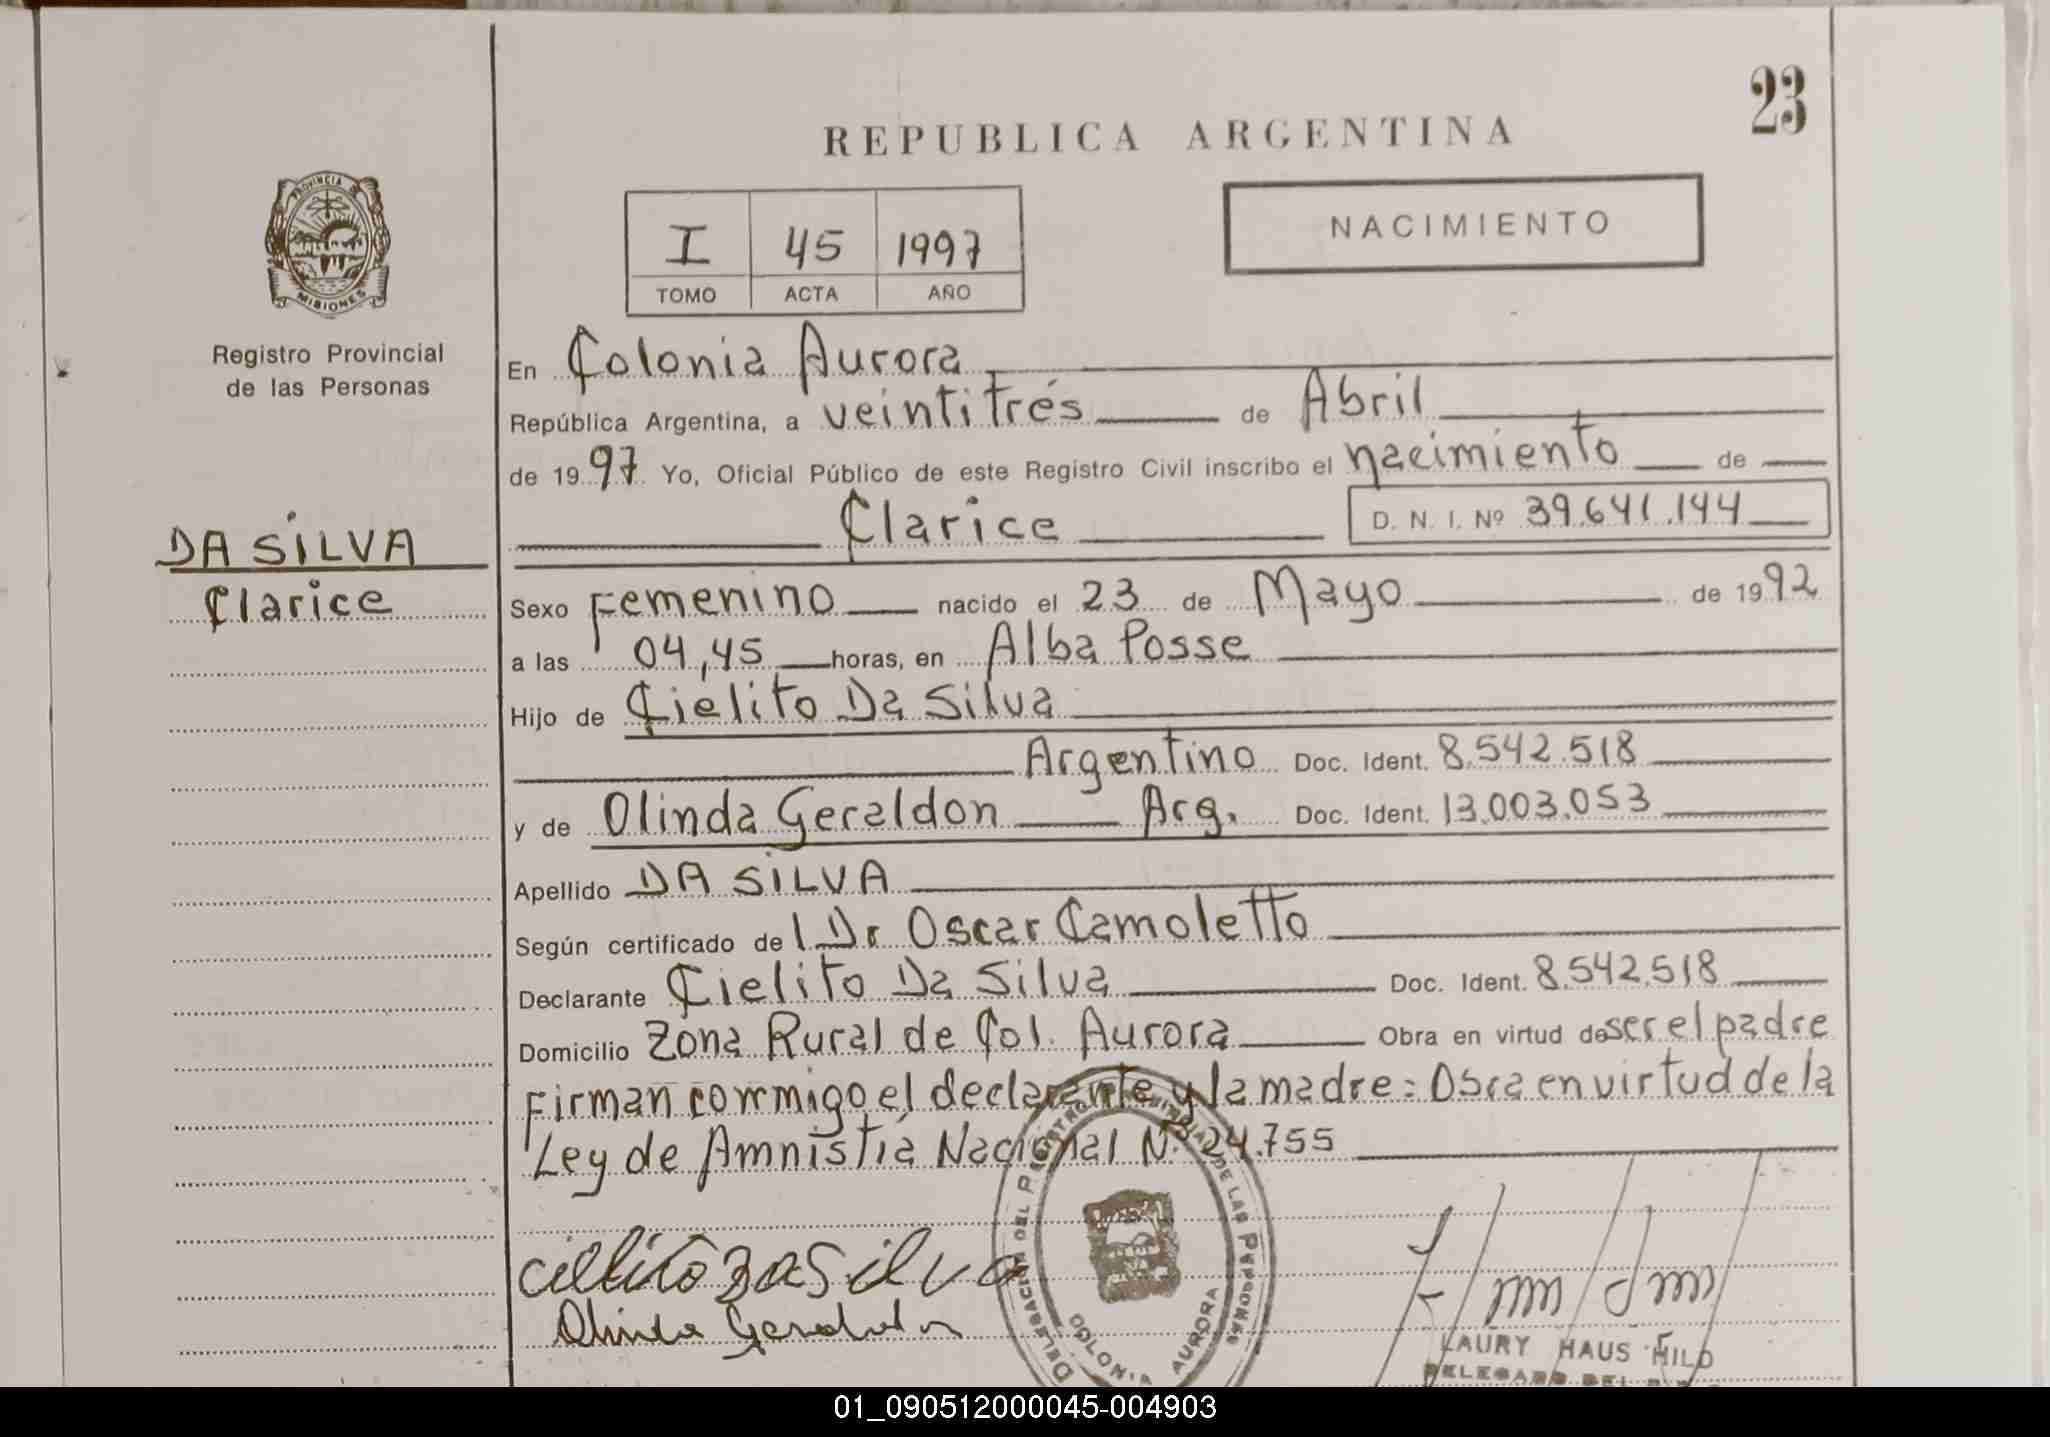 23
REPUBLICA ARGENTINA
PROVINCIA DE
MISIONES
I 45 1997
TOMO ACTA AÑO
NACIMIENTO
Registro Provincial
de las Personas
En Colonia Aurora
República Argentina, a veintitrés de Abril
de 1997 Yo, Oficial Público de este Registro Civil inscribo el nacimiento de
Clarice D. N. I. Nº 39.641.144
DA SILVA
Clarice
Sexo Femenino nacido el 23 de Mayo de 1992
a las 04,45 horas, en Alba Posse
Hijo de Cielito Da Silva
Argentino Doc. Ident. 8.542.518
y de Olinda Geraldon Arg. Doc. Ident. 13.003.053
Apellido DA SILVA
Según certificado de l Dr Oscar Camoletto
Declarante Cielito Da Silva Doc. Ident. 8.542.518
Domicilio Zona Rural de Col. Aurora Obra en virtud de ser el padre
Firman conmigo el declarante y la madre = Obra en virtud de la
Ley de Amnistía Nacional Nº 24.755
DELEGACION DEL REGISTRO PROVINCIAL DE LAS PERSONAS
COLONIA AURORA
Cielito Da Silva
Olinda Geraldon
LAURY HAUS HILD
DELEGADO DEL
01_090512000045-004903